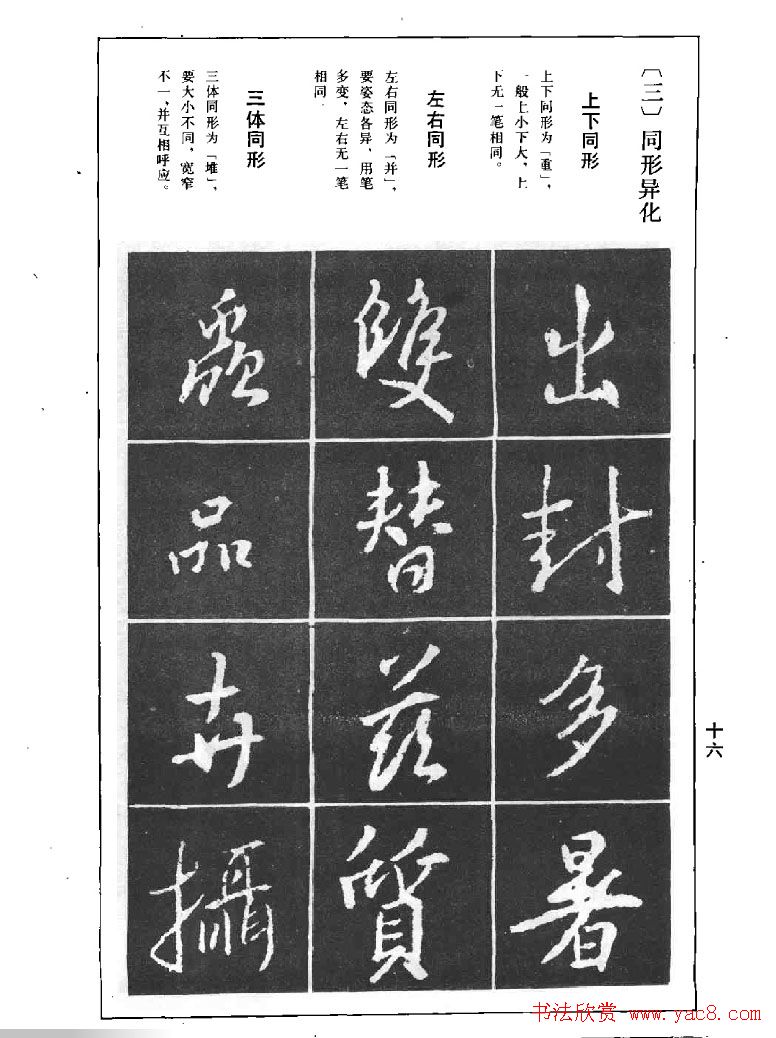 〔三〕同形异化
上下同形
上下同形为「重」，
一般上小下大，上
下无一笔相同。
左右同形
左右同形为「并」，
要姿态各异，用笔
多变，左右无一笔
相同．
三体同形
三体同形为「堆」，
要大小不同，宽窄
不一，并互相呼应。
出
封
多
暑
雙
替
茲
質
品
卉
攝
十六
书法欣赏 www.yac8.com